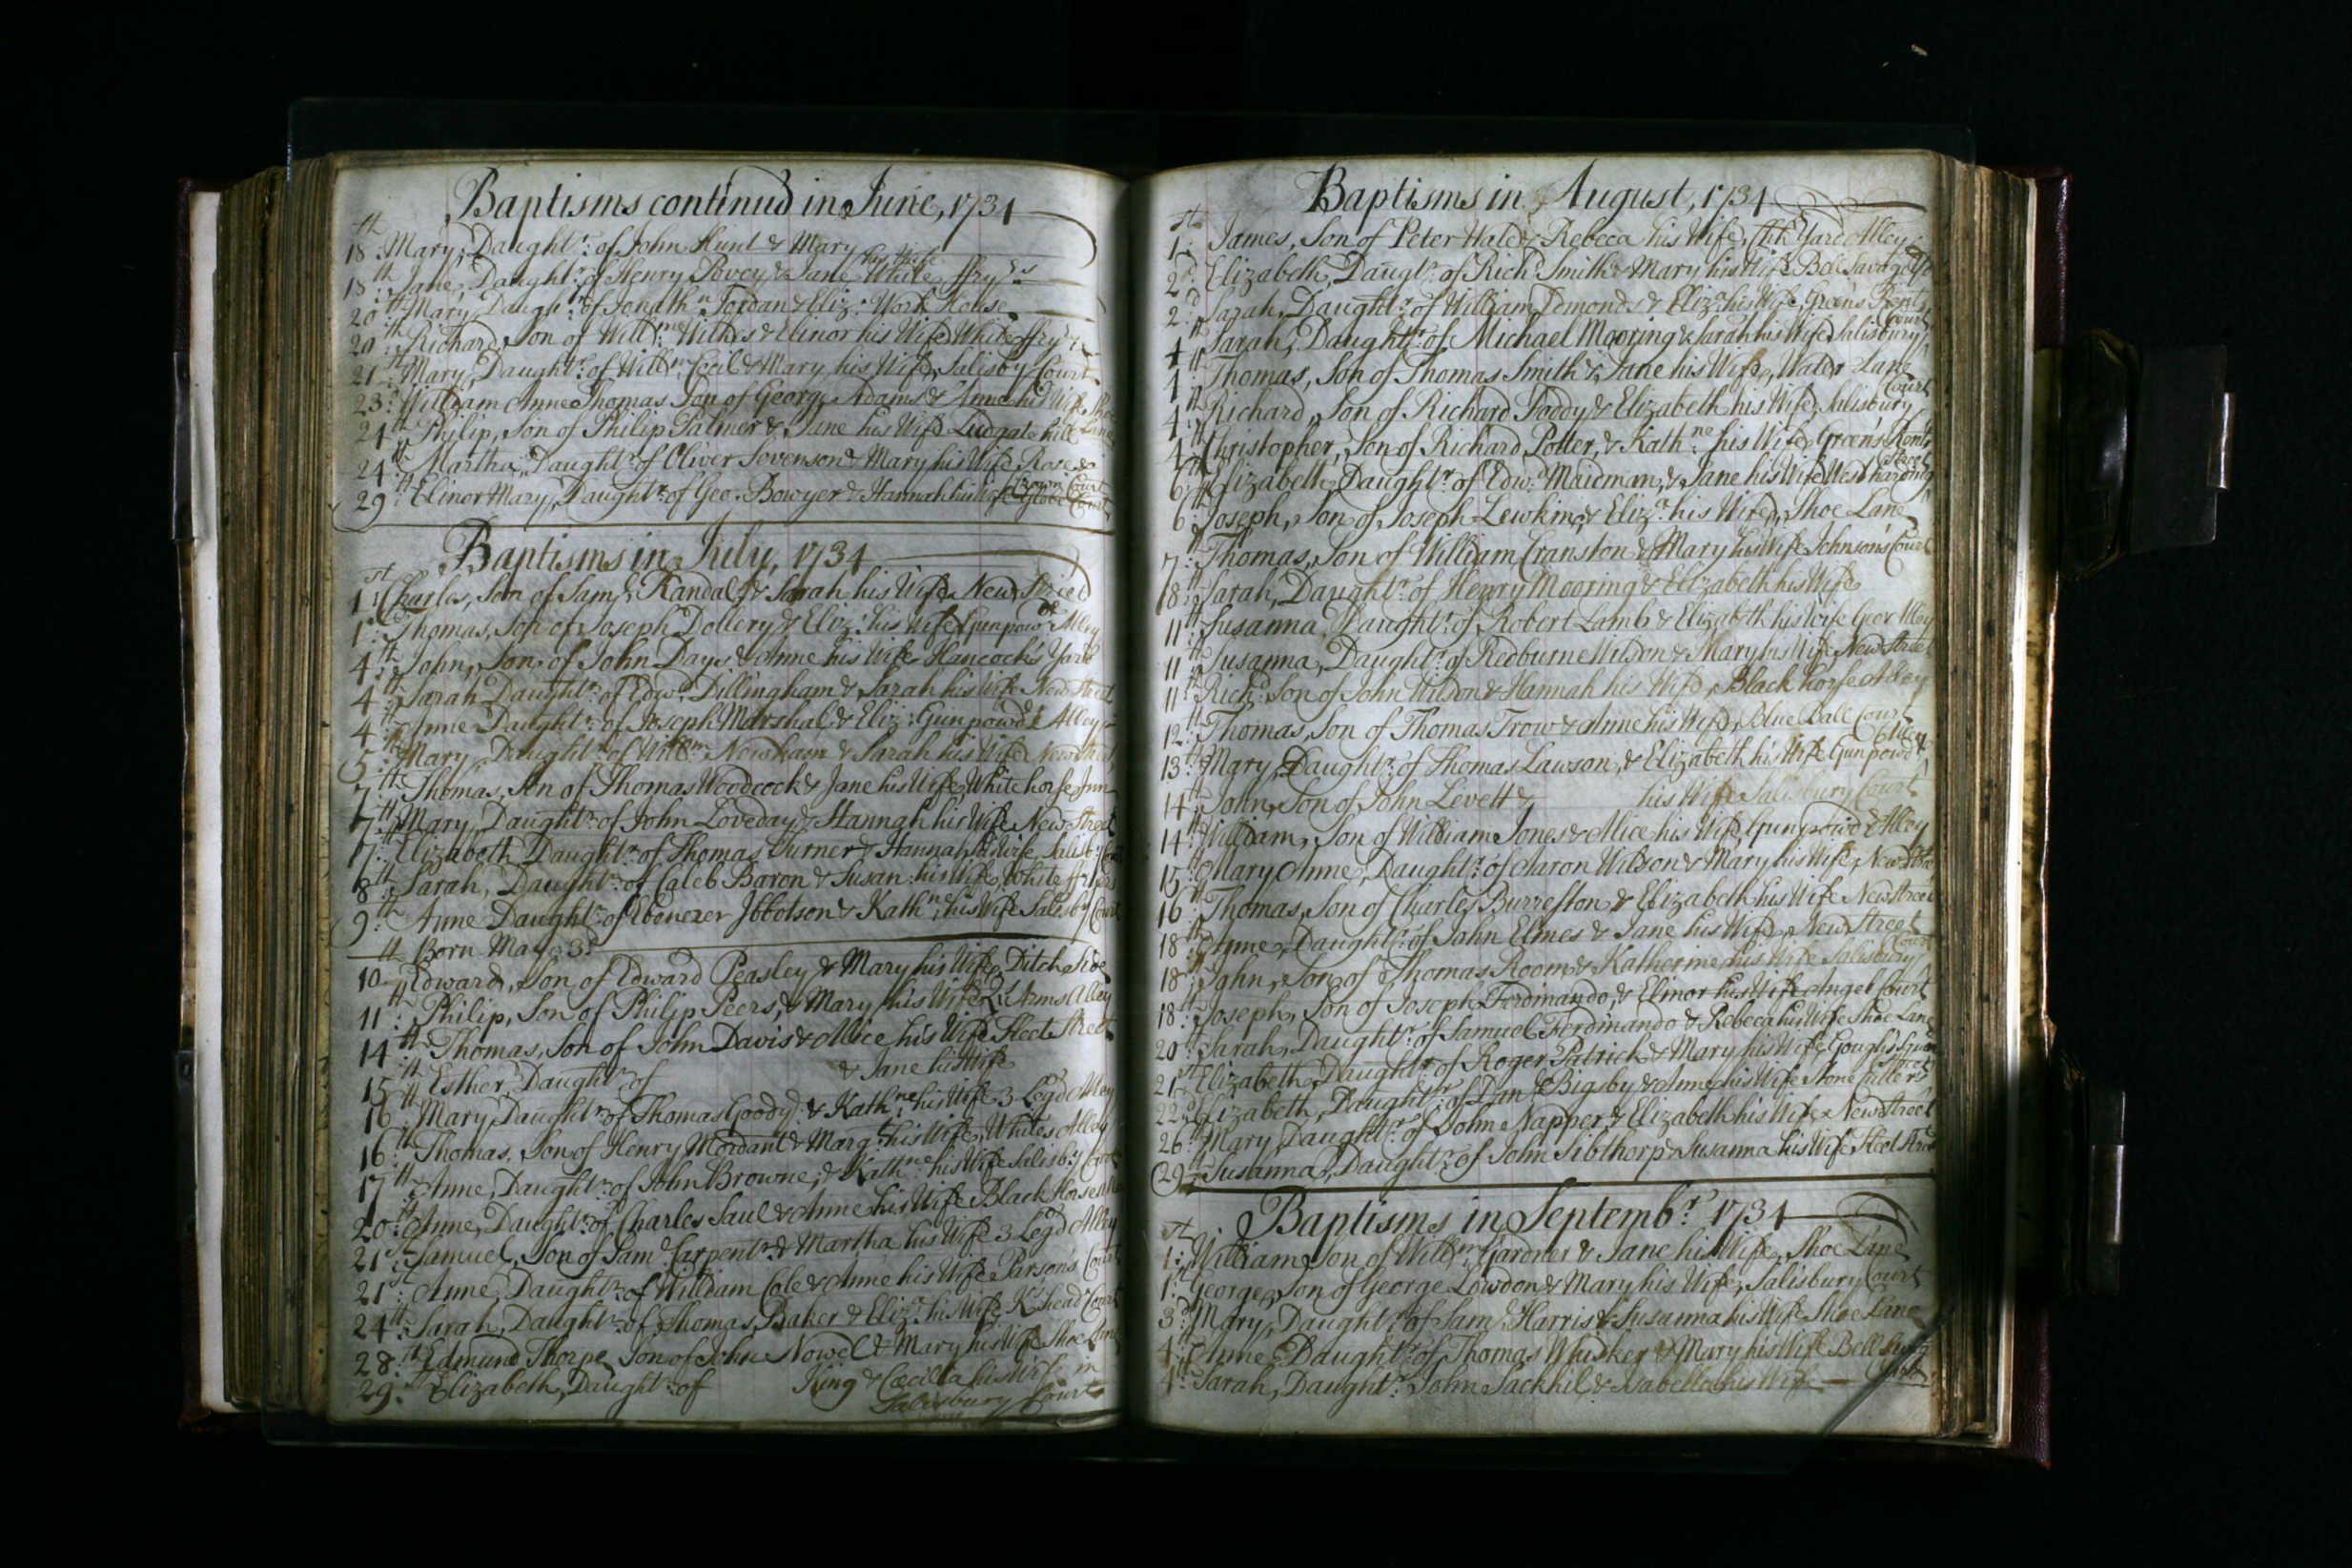 Baptisms continud in June, 1734
18th: Mary, Daughtr: of John Hunt & Mary his Wife
18th: Jane, Daughtr: of Henry Povey & Jane White ffryrs
20th: Mary, Daughtr: of Jonathn Jordan & Eliz: Work House
20th: Richard, Son of Willm: Wilks & Elinor his Wife White ffryrs
21st: Mary, Daughtr: of Willm: Cecil & Mary his Wife, Salisby Court
23d: William Anne Thomas Son of George Adams & Anne his Wife Shoe Lane
24th Philip, Son of Philip Palmer & Jane his Wife Ludgate hill
24th Martha, Daughtr: of Oliver Sovenson & Mary his Wife Rose & Crown Court
29th: Elinor Mary, Daughtr: of Geo: Bowyer & Hannah his Wife Globe Court
Baptisms in July, 1734
1st: Charles, Son of Saml: Randal & Sarah his Wife New Street
1st: Thomas, Son of Joseph Dollery & Eliz: his Wife Gunpowdr Alley
4th: John, Son of John Days & Anne his Wife Hancock's Yard
4th: Sarah Daughtr: of Edwd: Dillingham & Sarah his Wife New Street
4th: Anne Daughtr: of Joseph Marshal & Eliz: Gunpowdr Alley
5th: Mary, Daughtr: of Willm: Newham & Sarah his Wife New Street
7th: Thomas, Son of Thomas Woodcock & Jane his Wife, White horse Inn
7th: Mary, Daughtr: of John Loveday & Hannah his Wife New Street
7th: Elizabeth Daughtr: of Thomas Turner & Hannah his Wife, Salisby Court
8th: Sarah, Daughtr: of Caleb Baron & Susan: his Wife, White ffryers
9th: Anne Daughtr: of Ebenezer Ibbotson & Kathn: his Wife Salisby Court
Born May 3d
10th Edward, Son of Edward Peasley & Mary his Wife, Ditch side
11th: Philip, Son of Philip Peers, & Mary his Wife, Arms Alley
14th: Thomas, Son of John Davis & Alice his Wife Fleete Street
15th Esther, Daughtr: of & Jane his Wife
16th Mary, Daughtr: of Thomas Goody & Kathne: his Wife 3 Leg'd Alley
16th: Thomas, Son of Henry Mordant & Margt: his Wife, White's Alley
17th Anne, Daughtr: of John Browne, & Kathne his Wife Salisby Court
20th: Anne, Daughtr: of Charles Saul & Anne his Wife Black Horse Alley
21st: Samuel, Son of Saml Carpentr: & Martha his Wife 3 Leg'd Alley
21st: Anne, Daughtr: of William Cole & Anne his Wife Parson's Court
24th: Sarah, Daughtr: of Thomas Baker & Eliza: his Wife Ks head Court
28th: Edmund Thorpe Son of John Nowel & Mary his Wife Shoe Lane
29th: Elizabeth, Daughtr: of King & Cecilla his Wife in
Salisbury Court
Baptisms in August, 1734
1st: James, Son of Peter Hale & Rebecca his Wife, Yard Alley
2d: Elizabeth, Daughtr: of Richd Smith & Mary his Wife Bell Savage
2d: Sarah, Daughtr: of William Edmonds & Eliza: his Wife, Green's Rents
4th Sarah, Daughtr: of Michael Mooring & Sarah his Wife Salisbury Court
4th Thomas, Son of Thomas Smith & Jane his Wife, Water Lane
4th: Richard, Son of Richard Foody & Elizabeth his Wife, Salisbury Court
4th Christopher, Son of Richard Potter, & Kathne: his Wife Green's Rents
6th: Elizabeth, Daughtr: of Edw: Maidman, & Jane his Wife West harding Street
6th: Joseph, Son of Joseph Lewkin & Eliza: his Wife, Shoe Lane
7th: Thomas, Son of William Cranston & Mary his Wife Johnson's Court
8th: Sarah, Daughtr: of Henry Mooring & Elizabeth his Wife
11th: Susanna Daughtr: of Robert Lamb & Elizabeth his Wife Alley
11th: Susanna, Daughtr: of Redburne Wilson & Mary his Wife, New Street
11th Richd: Son of John Wildon & Hannah his Wife, Black horse Alley
12th: Thomas, Son of Thomas Trow & Anne his Wife, Blue Ball Court
13th: Mary, Daughtr: of Thomas Lawson, & Elizabeth his Wife Gunpowdr Alley
14th: John, Son of John Levett & his Wife Salisbury Court
14th: William, Son of William Jones & Alice his Wife, Gunpowdr Alley
15th: Mary Anne, Daughtr: of Aaron Wilson & Mary his Wife, New Street
16th: Thomas, Son of Charles Burreston & Elizabeth his Wife New Street
18th: Anne, Daughtr: of John Elmes & Jane his Wife, New Street
18th John, Son of Thomas Room & Katherine his Wife Salisbury Court
18th: Joseph, Son of Joseph Ferdinando, & Elinor his Wife Angel Court
20th: Sarah, Daughtr: of Samuel Ferdinando & Rebeca his Wife Shoe Lane
21st: Elizabeth, Daughtr: of Roger Patrick & Mary his Wife, Gough's Square
22d: Elizabeth, Daughtr: of Danl Bigsby & Anne his Wife Stone Cutters Street
26th: Mary, Daughtr: of John Napper & Elizabeth his Wife, New Street
29th: Susanna, Daughtr: of John Sibthorp & Susanna his Wife, Fleet Street
Baptisms in Septembr: 1734
1st: William Son of Willm Gardner & Jane his Wife, Shoe Lane
1st: George, Son of George Lowdon & Mary his Wife, Salisbury Court
3d: Mary, Daughtr: of Saml Harris & Susanna his Wife Shoe Lane
4th: Anne, Daughtr: of Thomas Whisker & Mary his Wife Bell Savage
4th: Sarah, Daughtr: John Sackhil & Isabella his Wife